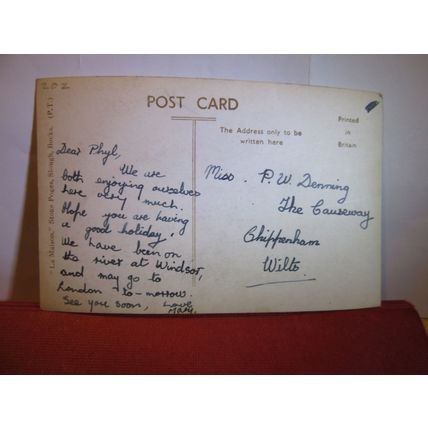 202
POST CARD
"La Maison," Stoke Poges, Slough, Bucks. (P.T.)
The Address only to be
written here
Printed
in
Britain
Dear Phyl,
We are
both enjoying ourselves
here very much.
Hope you are having
a good holiday,
We have been on
the river at Windsor,
and may go to
London to-morrow.
See you soon, Love
Mary.
Miss. P. W. Denning
The Causeway
Chippenham
Wilts